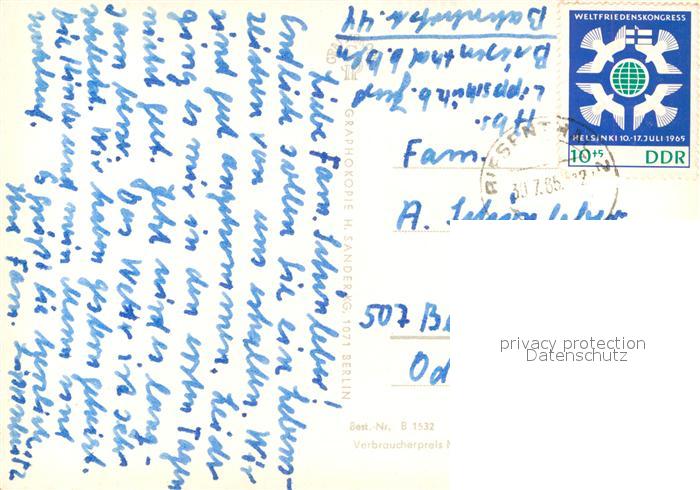 Liebe Fam. Schönleber!
Endlich sollen Sie ein Lebens-
zeichen von uns erhalten. Wir
sind gut angekommen. Leider
ging es mir in den ersten Tagen
nicht gut. Jetzt wird es lang-
sam besser. Das Wetter ist sehr
schlecht. Wir haben gestern
die Kinder und mein Mann sind
Es grüßt Sie herzlich
Ihre Fam.
GRAPHOKOPIE H. SANDER KG, 1071 BERLIN
Best.-Nr. B 1532
Verbraucherpreis M
Abs.
Biesenthal b. Bln
Bahnhofstr. 44
WELTFRIEDENSKONGRESS
HELSINKI 10.-17. JULI 1965
10+5 DDR
BIESENTHAL
30.7.65
Fam.
A. Schönleber
507 Be
Od
privacy protection
Datenschutz